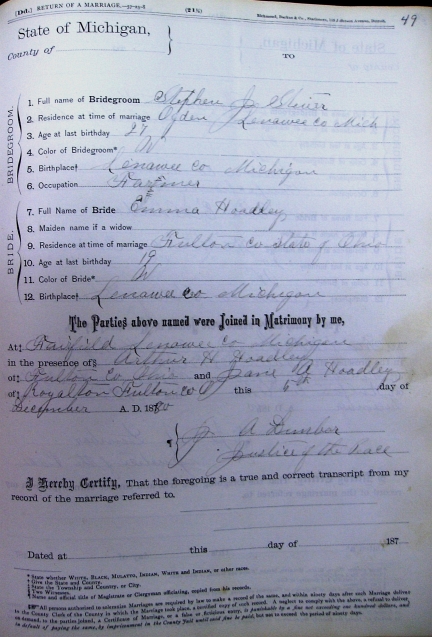 [Dd.] RETURN OF A MARRIAGE.
(218)
49
State of Michigan,
County of
TO
BRIDEGROOM.
1. Full name of Bridegroom Stephen J. Shiner
2. Residence at time of marriage Ogden Lenawee Co Mich
3. Age at last birthday 27
4. Color of Bridegroom* W
5. Birthplace† Lenawee Co Michigan
6. Occupation Farmer
BRIDE.
7. Full Name of Bride Emma Hoadley
8. Maiden name if a widow
9. Residence at time of marriage Fulton Co State of Ohio
10. Age at last birthday 19
11. Color of Bride* W
12. Birthplace† Lenawee Co Michigan
The Parties above named were Joined in Matrimony by me,
At‡ Fairfield Lenawee Co Michigan
in the presence of§ Arthur H Hoadley
of‡ Fulton Co Ohio and Jane A Hoadley
of‡ Royalton Fulton Co O this 6th day of
December A. D. 1880
A Dunbar
Justice of the Peace
I Hereby Certify, That the foregoing is a true and correct transcript from my
record of the marriage referred to.
Dated at this day of 187
* State whether WHITE, BLACK, MULATTO, INDIAN, WHITE and INDIAN, or other races.
† Give the State and County.
‡ State the Township and Country, or City.
§ Two Witnesses.
¶ Name and official title of Magistrate or Clergyman officiating, copied from his records.